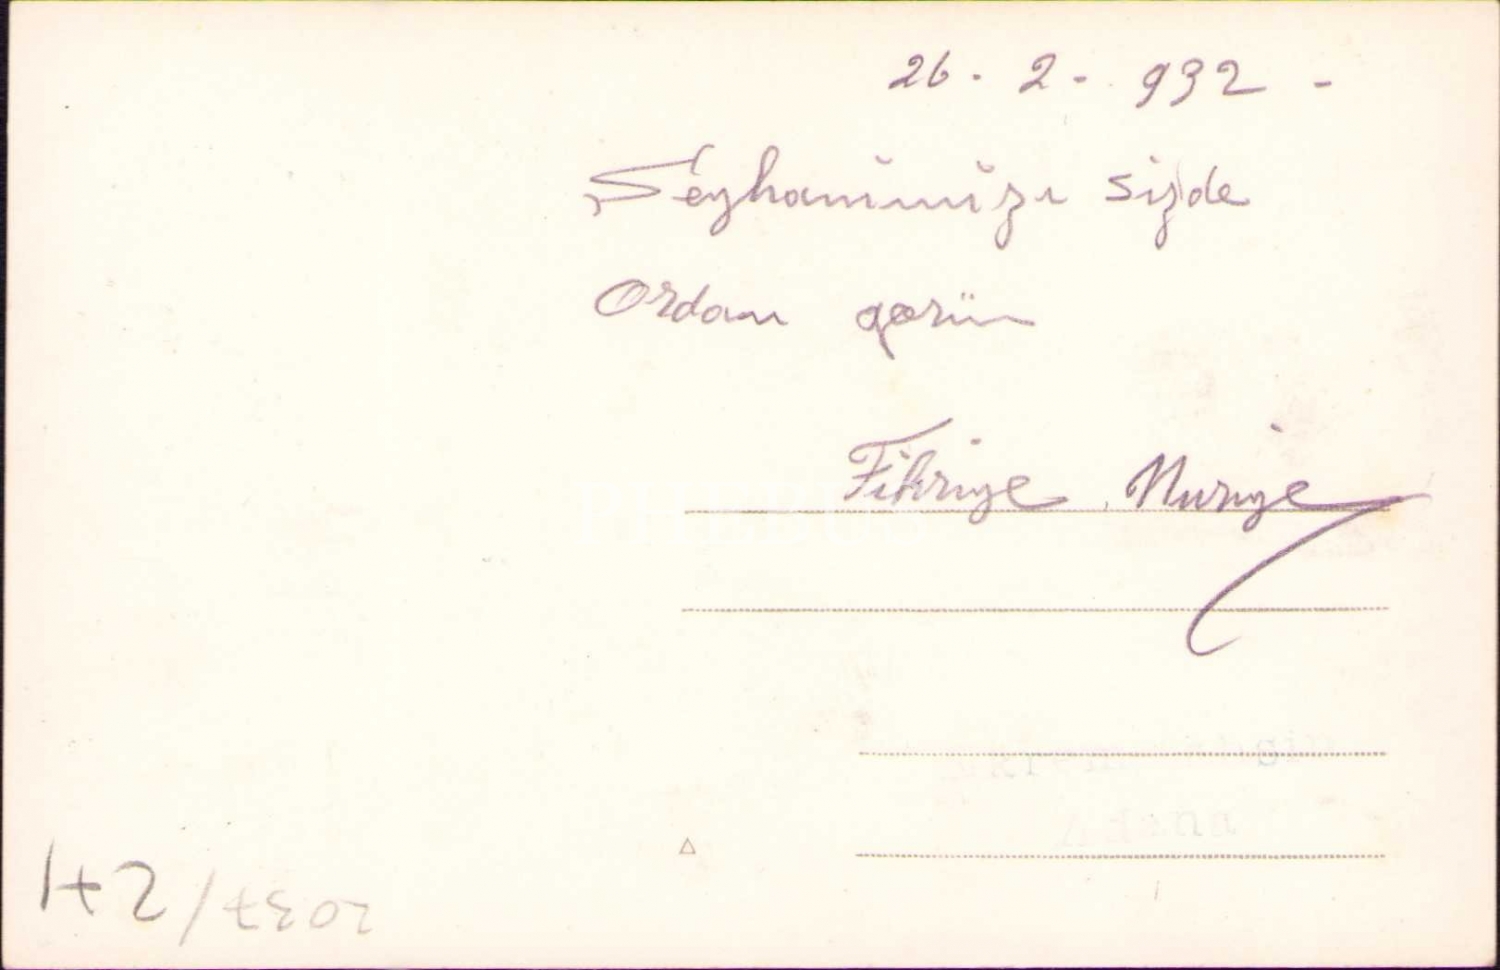 26 - 2 - 932 -
Seyhanımızı sizde
Ordan görün
Fikriye Nuriye
Adana